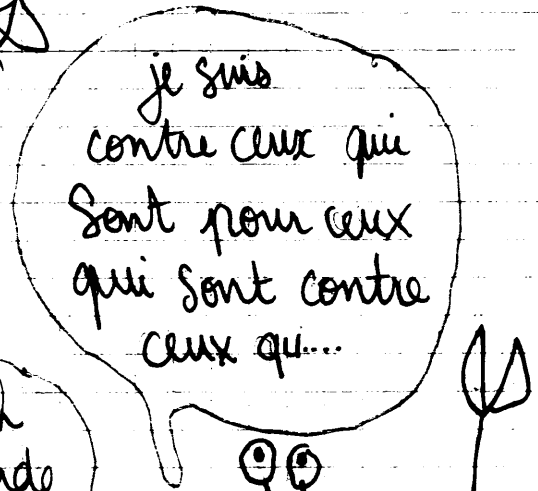 je suis
contre ceux qui
sont pour ceux
qui sont contre
ceux qu...